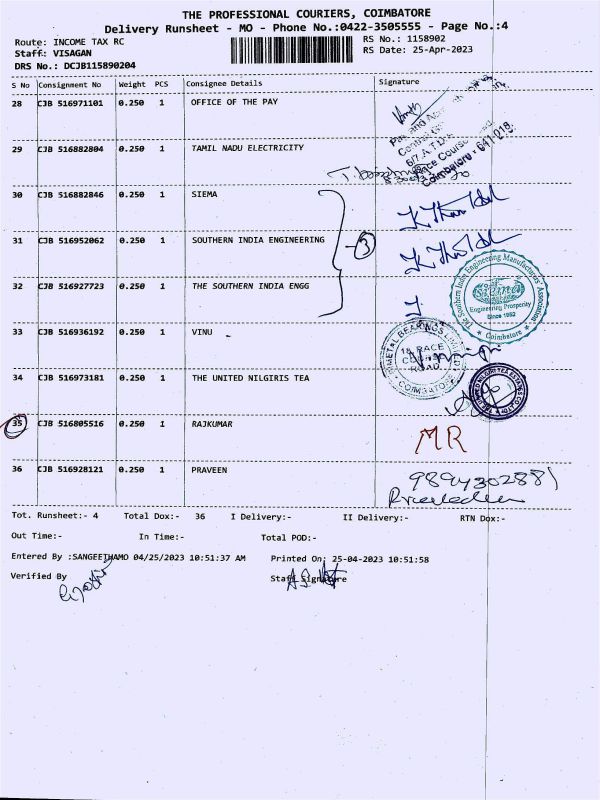 THE PROFESSIONAL COURIERS, COIMBATORE
Delivery Runsheet - MO - Phone No.:0422-3505555 - Page No.:4
Route: INCOME TAX RC RS No.: 1158902
Staff: VISAGAN RS Date: 25-Apr-2023
DRS No.: DCJB115890204
S No Consignment No Weight PCS Consignee Details Signature
28 CJB 516971101 0.250 1 OFFICE OF THE PAY
29 CJB 516882804 0.250 1 TAMIL NADU ELECTRICITY
Race Course
Coimbatore - 641 018.
30 CJB 516882846 0.250 1 SIEMA
31 CJB 516952062 0.250 1 SOUTHERN INDIA ENGINEERING 3
32 CJB 516927723 0.250 1 THE SOUTHERN INDIA ENGG
The Southern India Engineering Manufacturers' Association
siema
Engineering Prosperity
Since 1952
Coimbatore
33 CJB 516936192 0.250 1 VINU
BIMETAL BEARINGS LIMITED
18 RACE
COURSE
ROAD
COIMBATORE
34 CJB 516973181 0.250 1 THE UNITED NILGIRIS TEA
35 CJB 516805516 0.250 1 RAJKUMAR MR
36 CJB 516928121 0.250 1 PRAVEEN 9894302881
Tot. Runsheet:- 4 Total Dox:- 36 I Delivery:- II Delivery:- RTN Dox:-
Out Time:- In Time:- Total POD:-
Entered By :SANGEETHAMO 04/25/2023 10:51:37 AM Printed On: 25-04-2023 10:51:58
Verified By Staff Signature